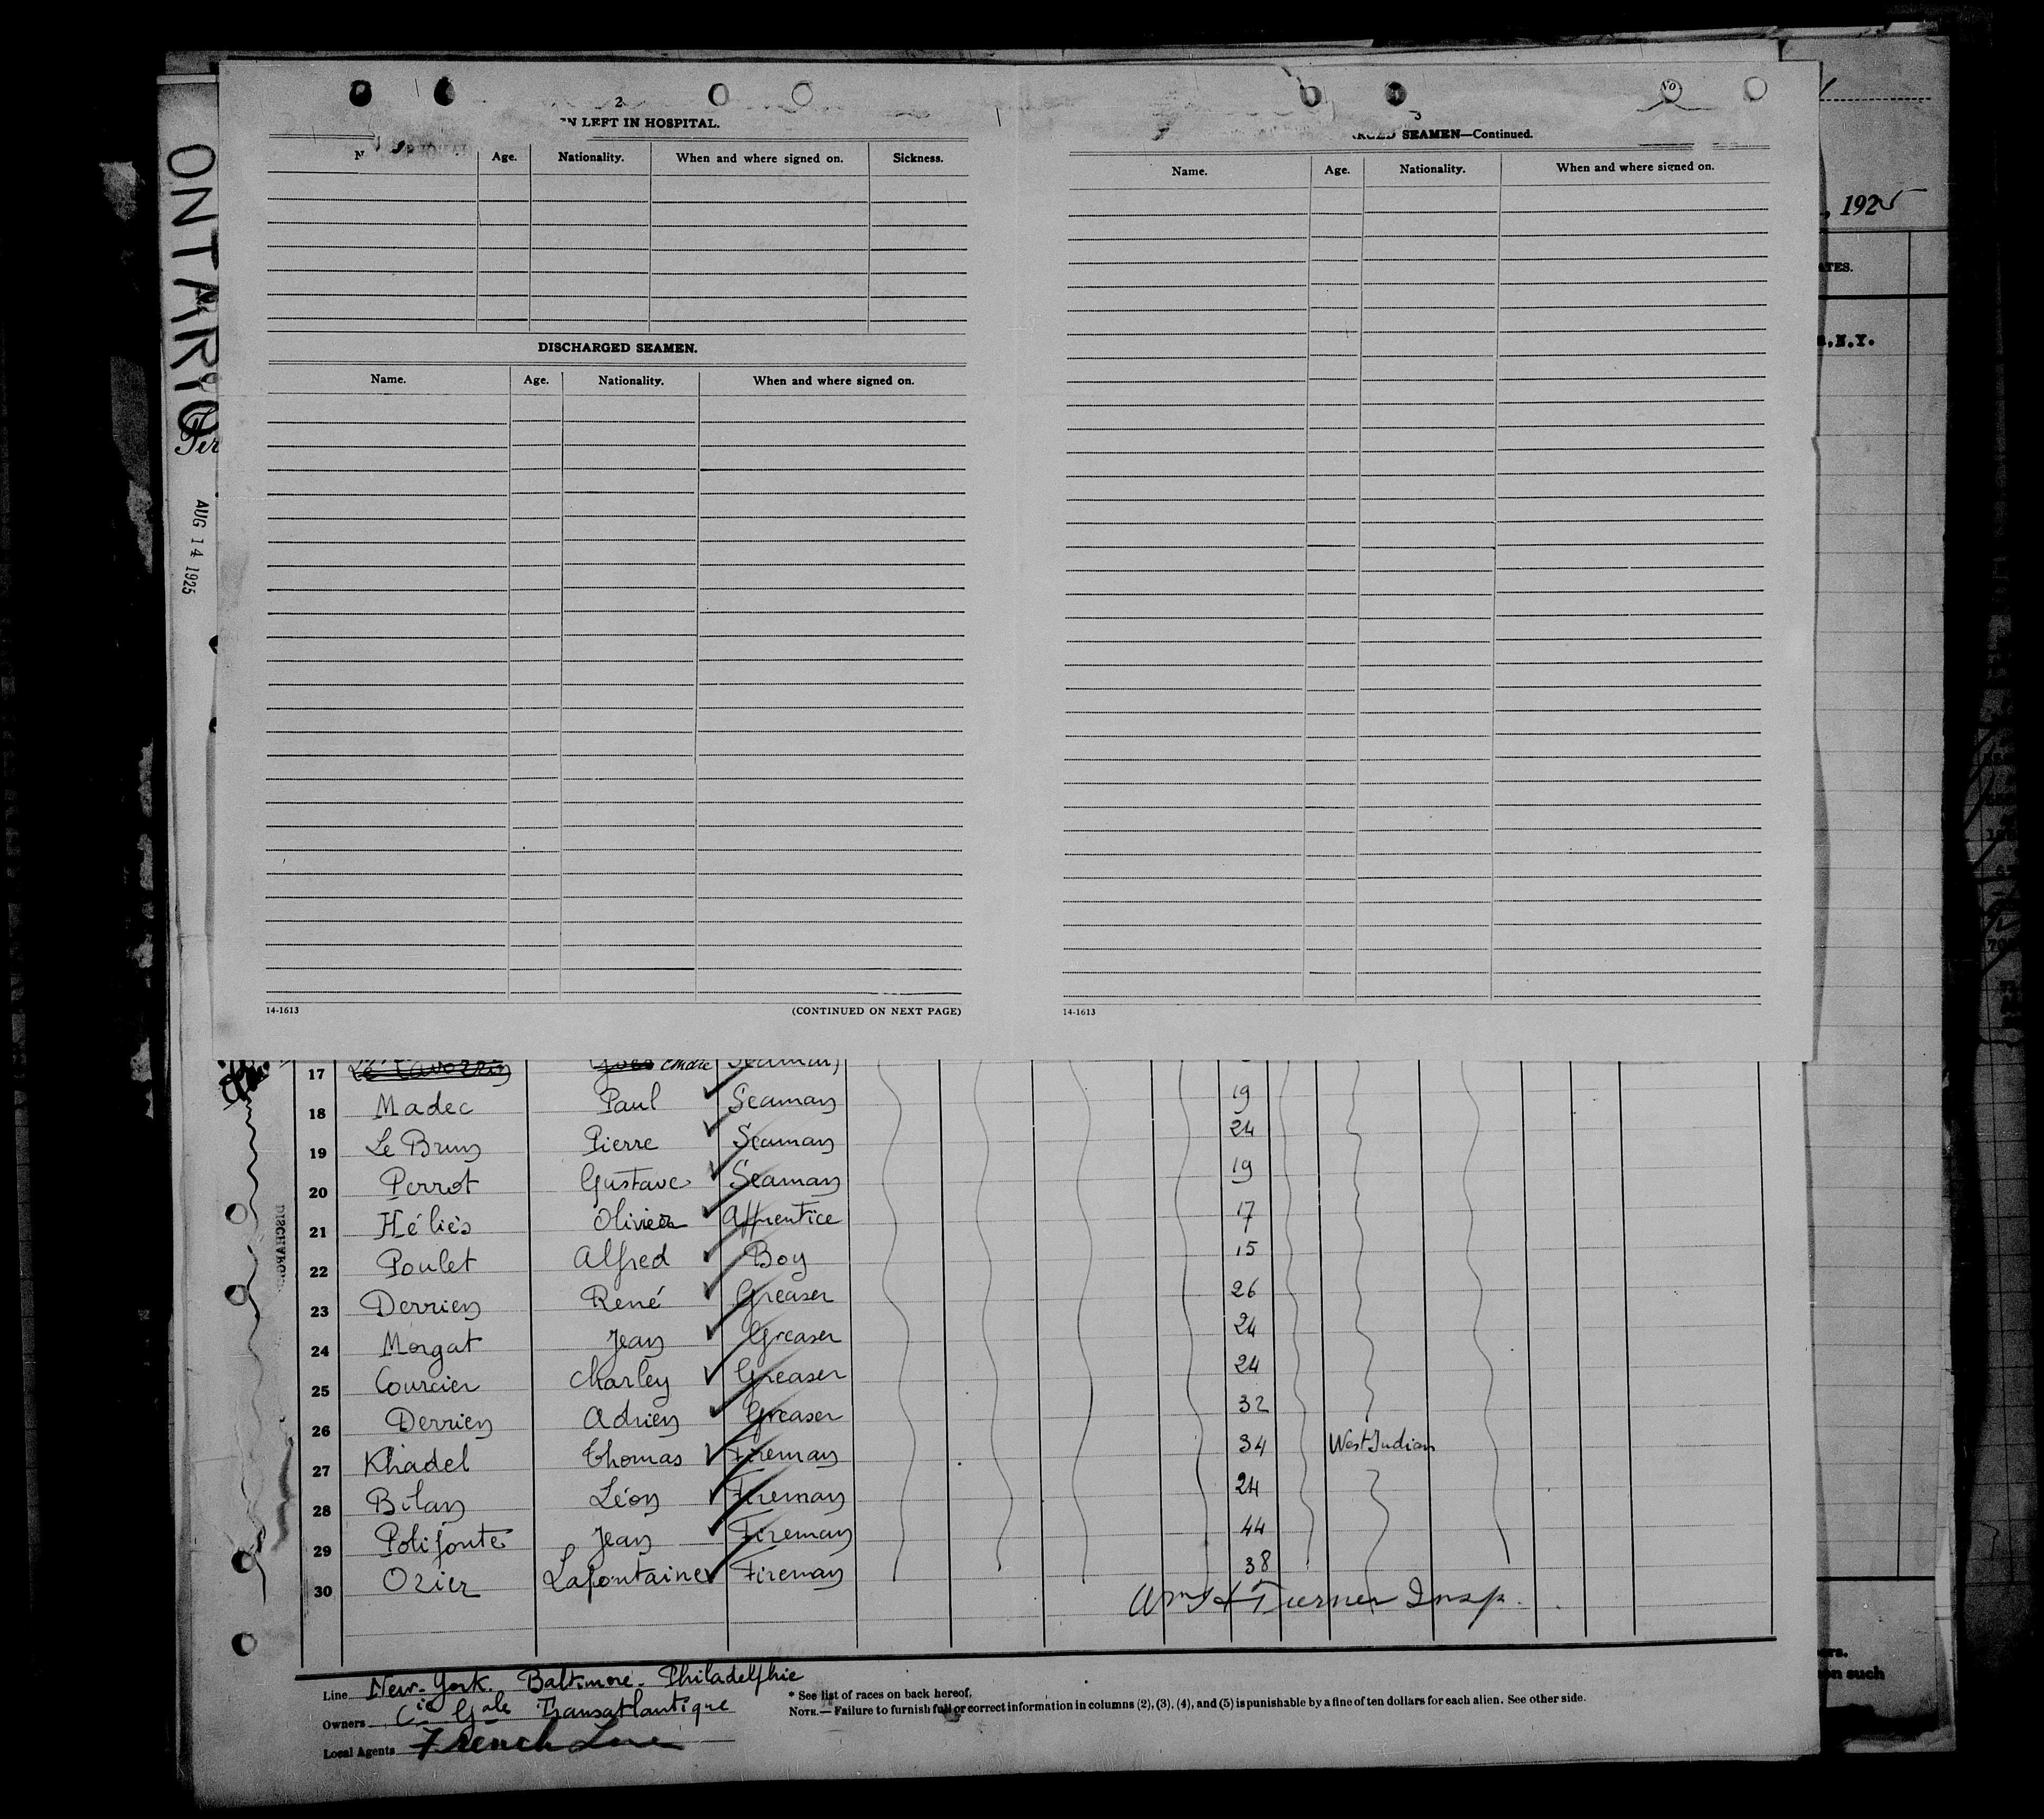 ONTARIO
AUG 14 1925
, 1925
ATES.
N.Y.
2
N LEFT IN HOSPITAL.
N Age. Nationality. When and where signed on. Sickness.
DISCHARGED SEAMEN.
Name. Age. Nationality. When and where signed on.
14-1613 (CONTINUED ON NEXT PAGE)
No
3
SEAMEN—Continued.
Name. Age. Nationality. When and where signed on.
14-1613
17 Seaman
18 Madec Paul Seaman 19
19 Le Brun Pierre Seaman 24
20 Perrot Gustave Seaman 19
21 Héliès Olivier Apprentice 17
22 Poulet Alfred Boy 15
23 Derrien René Greaser 26
24 Morgat Jean Greaser 24
25 Courcier Charley Greaser 24
26 Derrien Adrien Greaser 32
27 Khadel Thomas Fireman 34 West Indian
28 Bilan Léon Fireman 24
29 Polifonte Jean Fireman 44
30 Ozier Lafontaine Fireman 38
Wm H Turner Insp.
Line New-York. Baltimore. Philadelphie
Owners Cie Gale Transatlantique
Local Agents French Line
* See list of races on back hereof.
NOTE.—Failure to furnish full or correct information in columns (2), (3), (4), and (5) is punishable by a fine of ten dollars for each alien. See other side.
on such